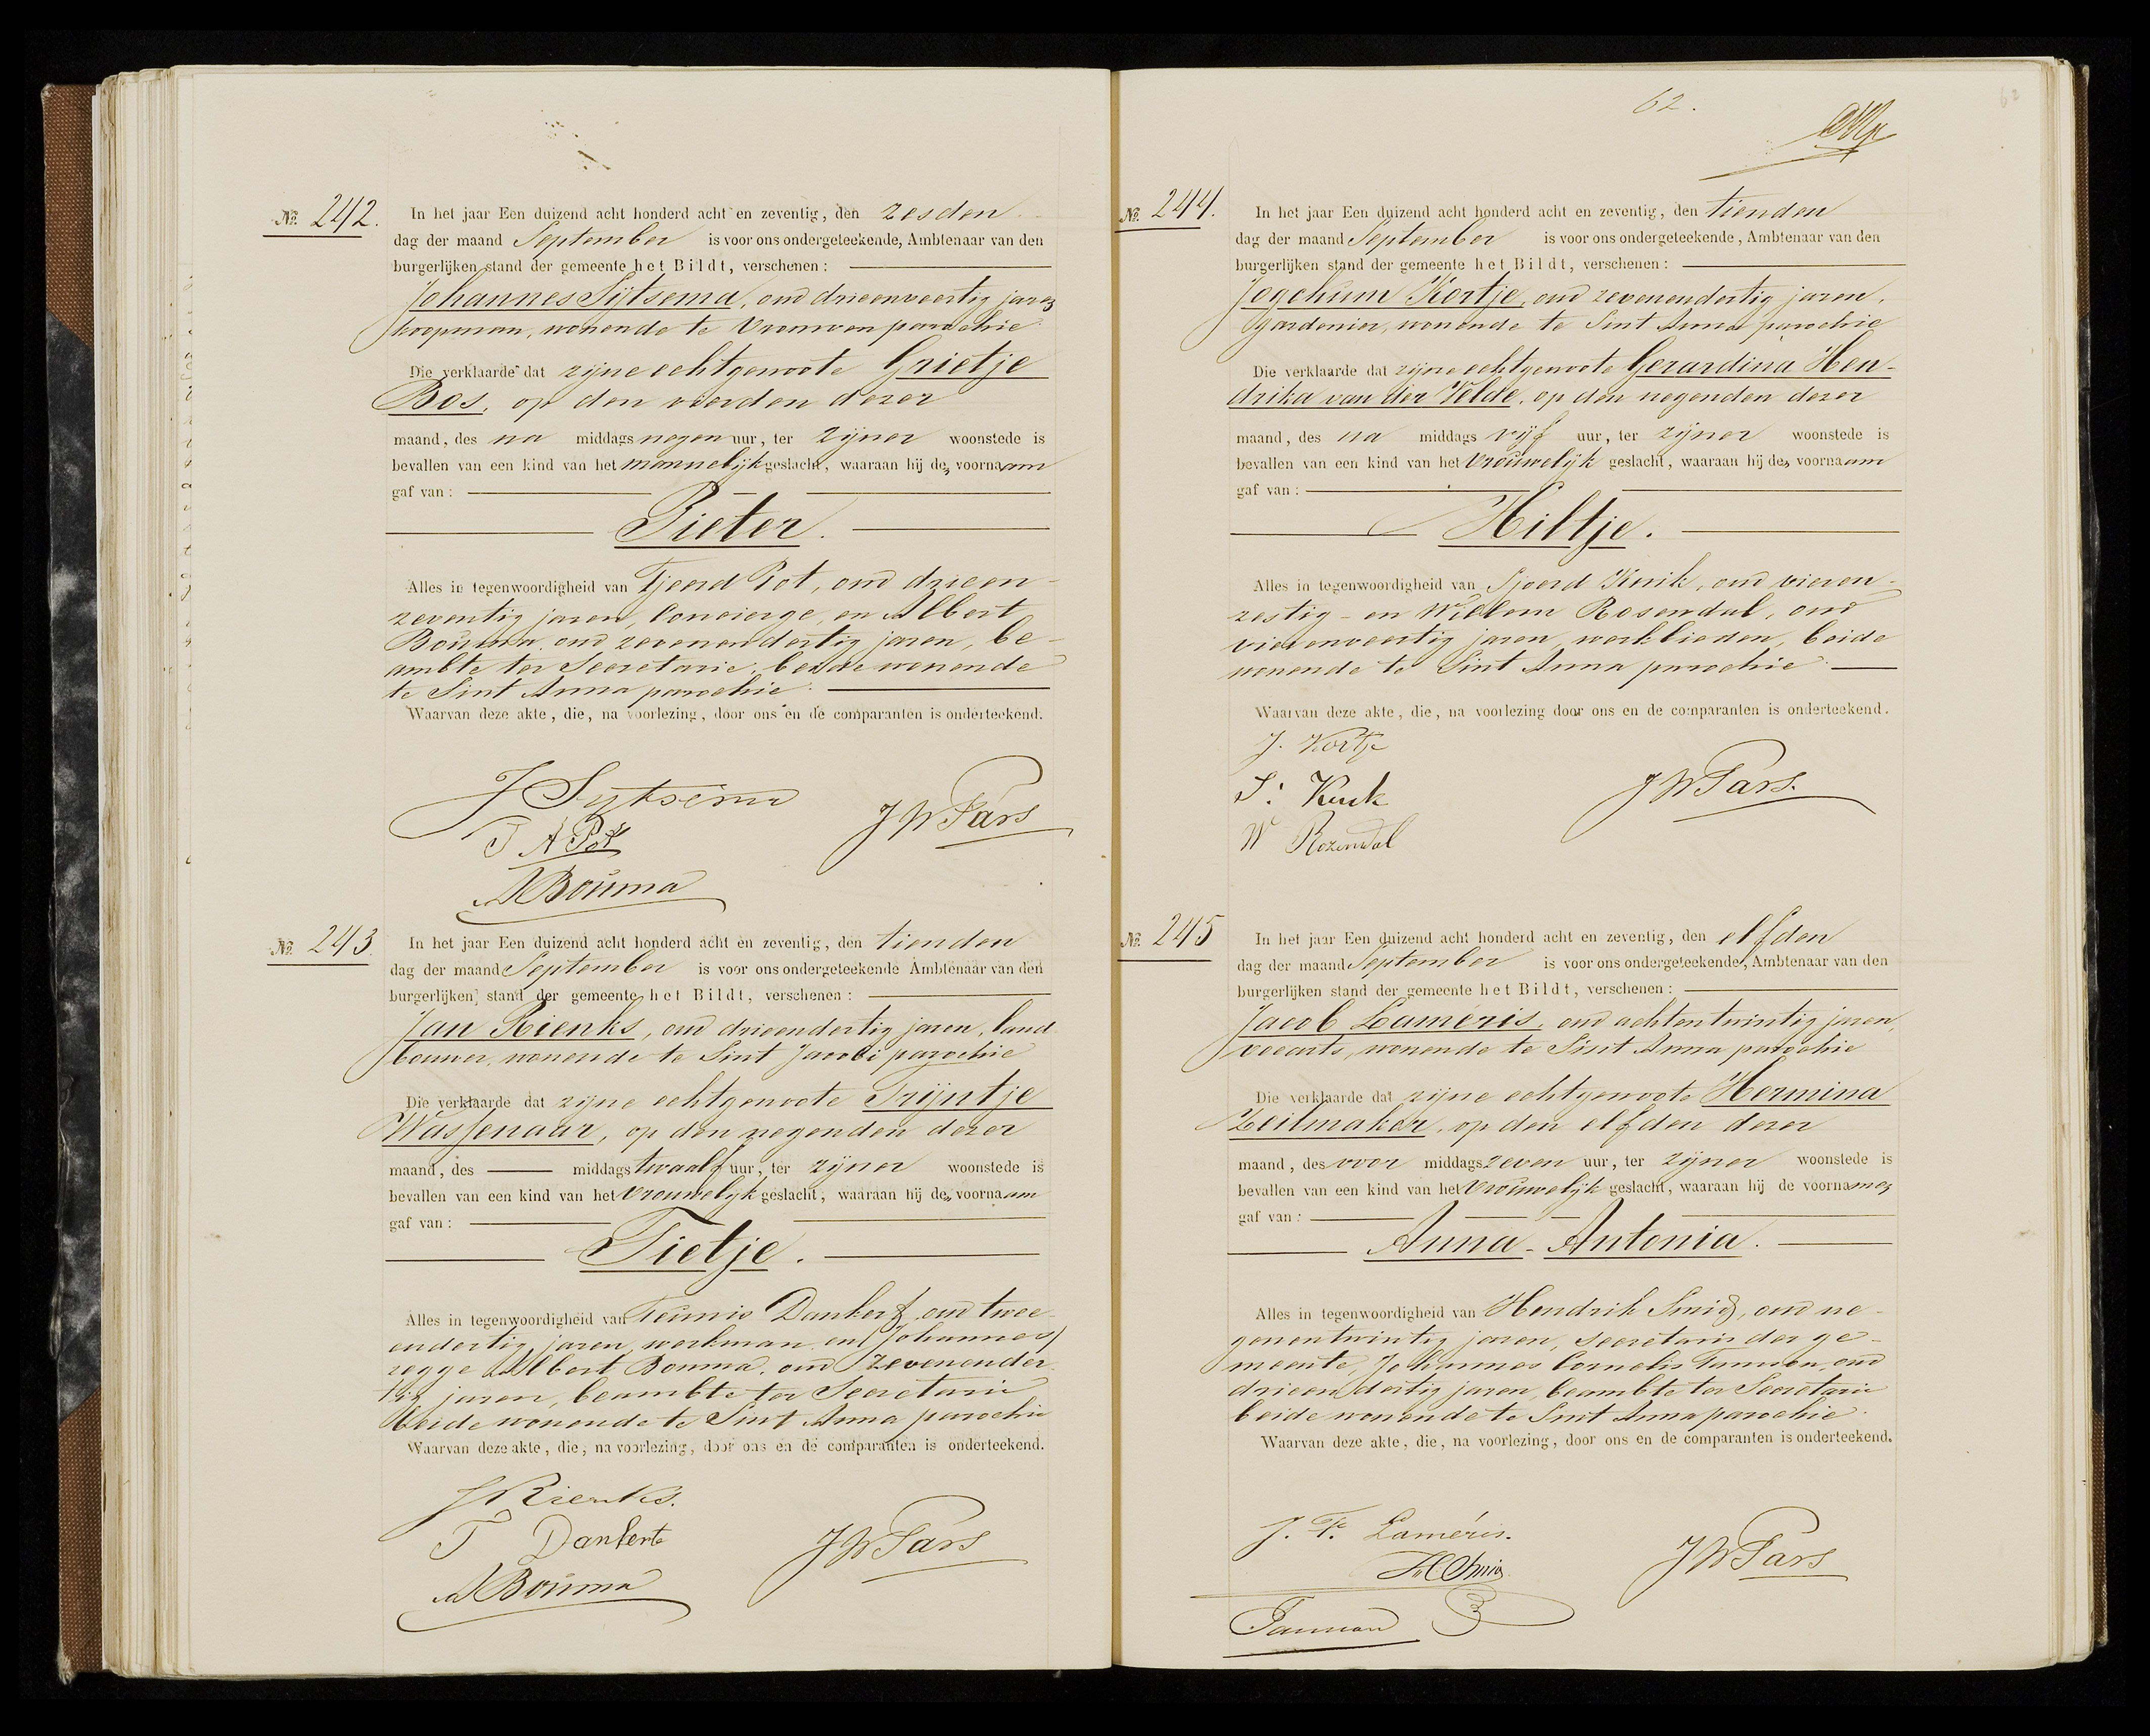 No. 242.
In het jaar Een duizend acht honderd acht en zeventig, den zesden
dag der maand September is voor ons ondergeteekende, Ambtenaar van den
burgerlijken stand der gemeente het Bildt, verschenen:
Johannes Sijtsema, oud drieenveertig jaren
koopman, wonende te Vrouwen parochie
Die verklaarde dat zijne echtgenoote Grietje
Bos, op den vierden dezer
maand, des na middags negen uur, ter zijner woonstede is
bevallen van een kind van het mannelijk geslacht, waaraan hij den voornaam
gaf van:
Pieter.
Alles in tegenwoordigheid van Tjeerd Pot, oud drieen-
zeventig jaren, Concierge, en Albert
Bouma, oud zevenendertig jaren, be-
ambte ter Secretarie, beide wonende
te Sint Anna parochie.
Waarvan deze akte, die, na voorlezing, door ons en de comparanten is onderteekend.
J Sytsema
T A Pot
JW Pars
A Bouma
No. 243.
In het jaar Een duizend acht honderd acht en zeventig, den tienden
dag der maand September is voor ons ondergeteekende Ambtenaar van den
burgerlijken stand der gemeente het Bildt, verschenen:
Jan Rienks, oud drieendertig jaren, land
bouwer, wonende te Sint Jacobi parochie
Die verklaarde dat zijne echtgenoote Trijntje
Wassenaar, op den negenden dezer
maand, des middags twaalf uur, ter zijner woonstede is
bevallen van een kind van het vrouwelijk geslacht, waaraan hij den voornaam
gaf van:
Tietje.
Alles in tegenwoordigheid van Teunis Dankert, oud twee
endertig jaren, werkman en (Johannes)
zegge Albert Bouma, oud zevenender
tig jaren, beambte ter Secretarie
beide wonende te Sint Anna parochie
Waarvan deze akte, die, na voorlezing, door ons en de comparanten is onderteekend.
J Rienks.
T Dankert
JW Pars
A Bouma
62.
62
No. 244.
In het jaar Een duizend acht honderd acht en zeventig, den tienden
dag der maand September is voor ons ondergeteekende, Ambtenaar van den
burgerlijken stand der gemeente het Bildt, verschenen:
Jogchum Kortje, oud zevenendertig jaren,
gardenier, wonende te Sint Anna parochie
Die verklaarde dat zijne echtgenoote Gerardina Hen-
drika van der Velde, op den negenden dezer
maand, des na middags vijf uur, ter zijner woonstede is
bevallen van een kind van het vrouwelijk geslacht, waaraan hij den voornaam
gaf van:
Hiltje.
Alles in tegenwoordigheid van Sjoerd Kuik, oud vieren-
zestig - en Willem Rosendal, oud
vierenveertig jaren, werklieden, beide
wonende te Sint Anna parochie.
Waarvan deze akte, die, na voorlezing door ons en de comparanten is onderteekend.
J. Kortje
S: Kuik
JW Pars.
W Rozendal
No. 245
In het jaar Een duizend acht honderd acht en zeventig, den elfden
dag der maand September is voor ons ondergeteekende, Ambtenaar van den
burgerlijken stand der gemeente het Bildt, verschenen:
Jacob Laméris, oud achtentwintig jaren,
veearts, wonende te Sint Anna parochie
Die verklaarde dat zijne echtgenoote Hermina
Zeilmaker, op den elfden dezer
maand, des voor middags zeven uur, ter zijner woonstede is
bevallen van een kind van het vrouwelijk geslacht, waaraan hij de voornamen
gaf van:
Anna-Antonia.
Alles in tegenwoordigheid van Hendrik Smids, oud ne-
genentwintig jaren, secretaris der ge-
meente, Johannes Cornelis Tamson, oud
drieendertig jaren, beambte ter Secretarie
beide wonende te Sint Anna parochie.
Waarvan deze akte, die, na voorlezing, door ons en de comparanten is onderteekend.
J. F. Laméris.
JW Pars